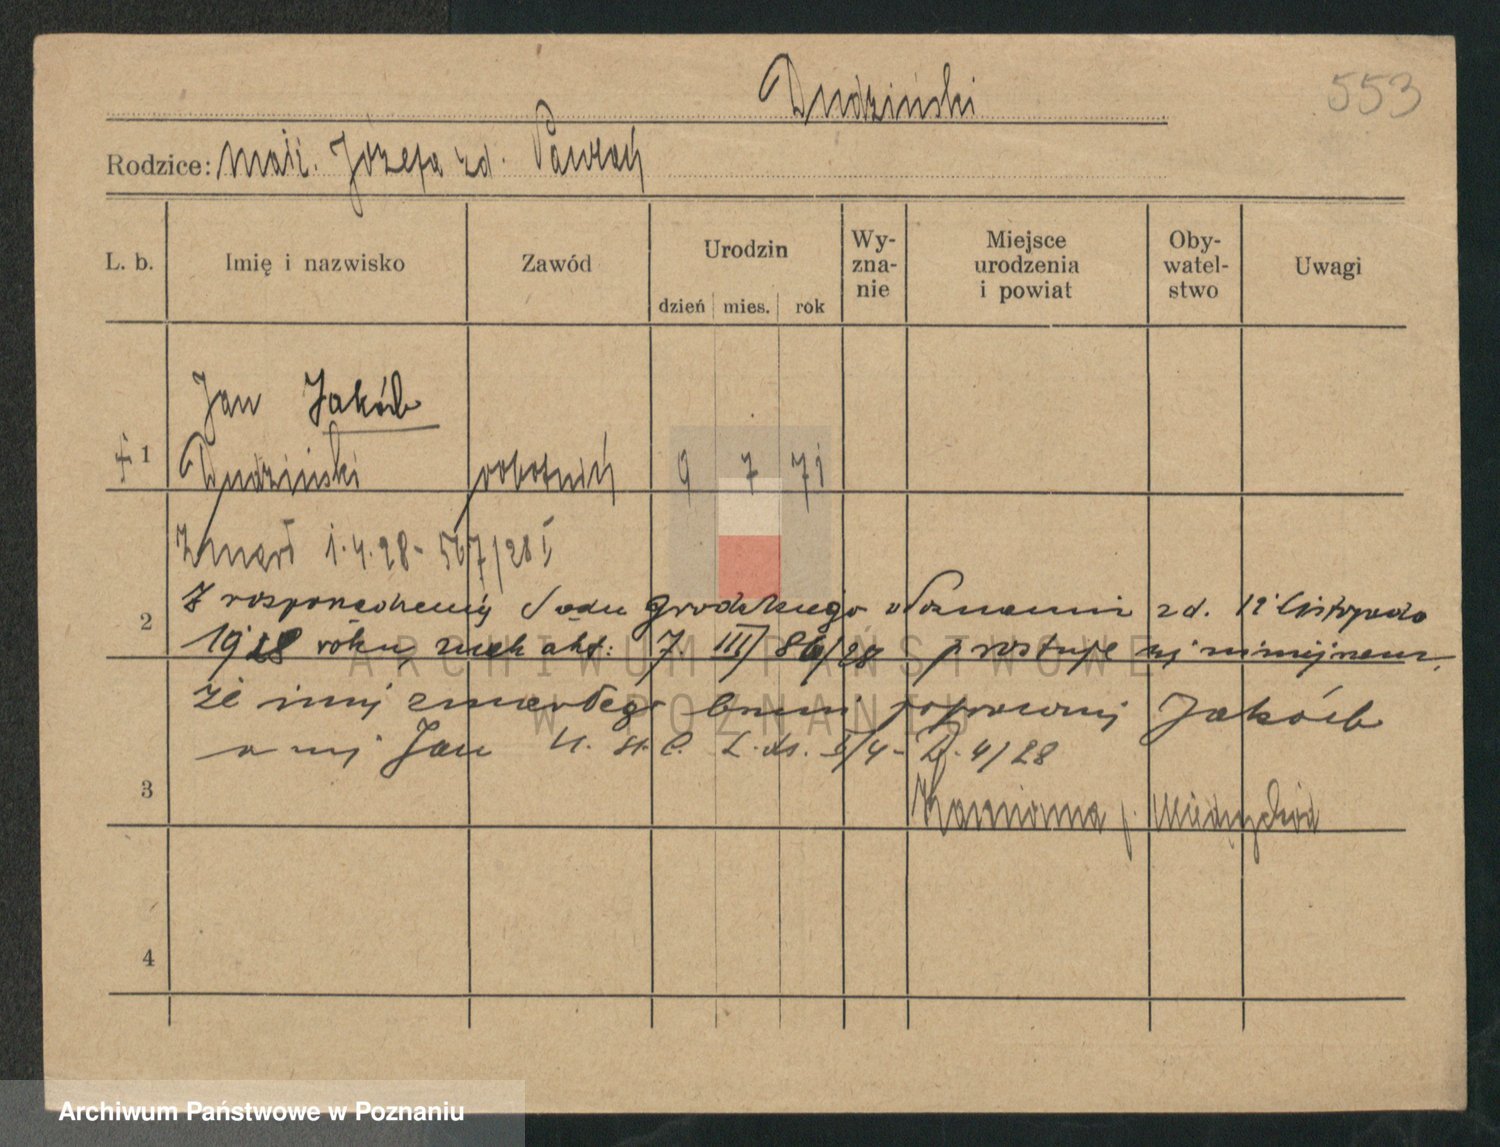 Dudziński
553
Rodzice: małż. Józefa zd. Pawlak
L. b.
Imię i nazwisko
Zawód
Urodzin
dzień mies. rok
Wy-
zna-
nie
Miejsce
urodzenia
i powiat
Oby-
watel-
stwo
Uwagi
Jan Jakób
1 Dudziński robotnik 9 7 71
Zmarł 1.4.28 - 567/28 I
Z rozporządzenia Sądu grodzkiego w Poznaniu z d. 12 listopada
2
1928 roku, znak akt: 7. III/86/28 prostuje się niniejszem,
że imię zmarłego brzmi poprawnie Jakób
a nie Jan U. St. C. L. dz. 4/28
3
Kamionna p. Międzychód
4
ARCHIWUM PAŃSTWOWE
W POZNANIU
Archiwum Państwowe w Poznaniu